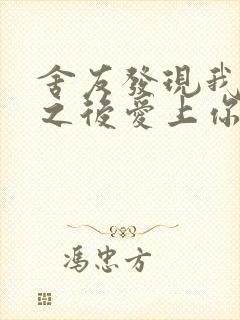 舍友發現我
之後愛上你
馮忠方